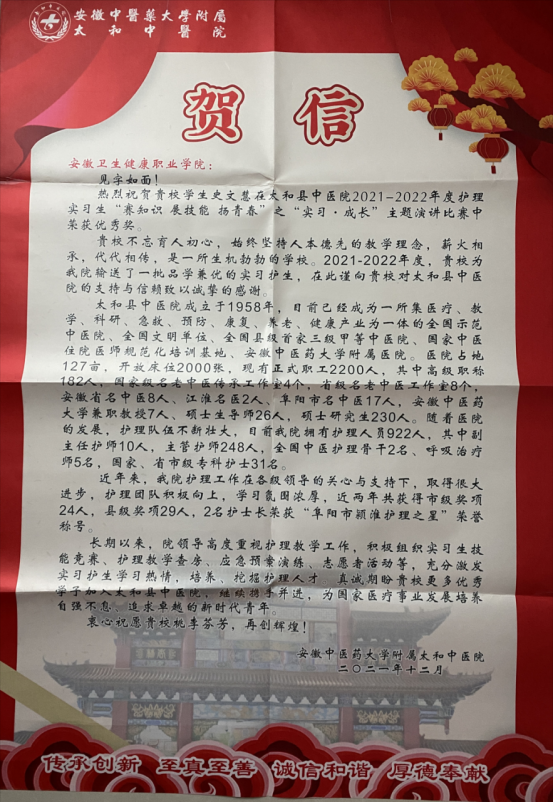 安徽中醫藥大學附屬
太和中醫院
贺信
安徽卫生健康职业学院：
见字如面！
热烈祝贺贵校学生史文慧在太和县中医院2021-2022年度护理
实习生“赛知识 展技能 扬青春”之“实习·成长”主题演讲比赛中
荣获优秀奖。
贵校不忘育人初心，始终坚持人本德先的教学理念，薪火相
承，代代相传，是一所生机勃勃的学校。2021-2022年度，贵校为
我院输送了一批品学兼优的实习护生，在此谨向贵校对太和县中医
院的支持与信赖致以诚挚的感谢。
太和县中医院成立于1958年，目前已经成为一所集医疗、教
学、科研、急救、预防、康复、养老、健康产业为一体的全国示范
中医院、全国文明单位、全国县级首家三级甲等中医院、国家中医
住院医师规范化培训基地、安徽中医药大学附属医院。医院占地
127亩，开放床位2000张，现有正式职工2200人，其中高级职称
182人，国家级名老中医传承工作室4个，省级名老中医工作室8个，
安徽省名中医8人、江淮名医2人、阜阳市名中医17人，安徽中医药
大学兼职教授7人、硕士生导师26人，硕士研究生230人。随着医院
的发展，护理队伍不断壮大，目前我院拥有护理人员922人，其中副
主任护师10人，主管护师248人，全国中医护理骨干2名、呼吸治疗
师5名，国家、省市级专科护士31名。
近年来，我院护理工作在各级领导的关心与支持下，取得很大
进步，护理团队积极向上，学习氛围浓厚，近两年共获得市级奖项
24人，县级奖项29人，2名护士长荣获“阜阳市颍淮护理之星”荣誉
称号。
长期以来，院领导高度重视护理教学工作，积极组织实习生技
能竞赛、护理教学查房、应急预案演练、志愿者活动等，充分激发
实习护生学习热情，培养、挖掘护理人才 真诚期盼贵校更多优秀
学子加入太和县中医院，继续携手并进，为国家医疗事业发展培养
自强不息、追求卓越的新时代青年。
衷心祝愿贵校桃李芬芳，再创辉煌！
安徽中医药大学附属太和中医院
二〇二一年十二月
传承创新 至真至善 诚信和谐 厚德奉献